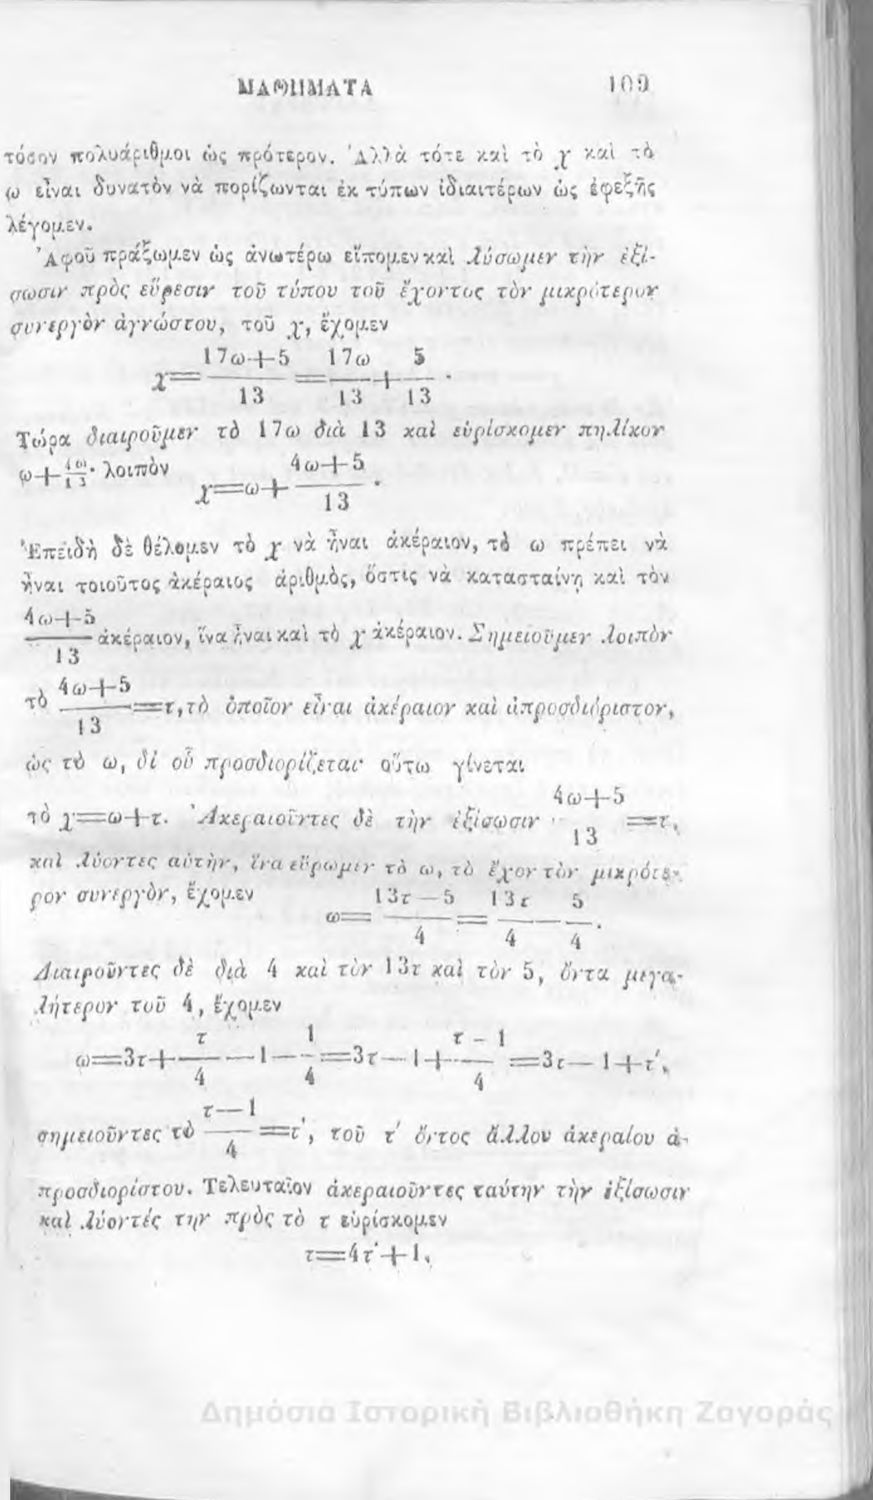 ΜΑΘΗΜΑΤΑ 109
τόσον πολυάριθμοι ὡς πρότερον. Ἀλλὰ τότε καὶ τὸ χ καὶ τὸ
ω εἶναι δυνατὸν νὰ πορίζωνται ἐκ τύπων ἰδιαιτέρων ὡς ἐφεξῆς
λέγομεν.
Ἀφοῦ πράξωμεν ὡς ἀνωτέρω εἴπομεν καὶ λύσωμεν τὴν ἐξί-
σωσιν πρὸς εὕρεσιν τοῦ τύπου τοῦ ἔχοντος τὸν μικρότερον
συνεργὸν ἀγνώστου, τοῦ χ, ἔχομεν
χ=(17ω+5)/13=17ω/13+5/13.
Τώρα διαιροῦμεν τὸ 17ω διὰ 13 καὶ εὑρίσκομεν πηλίκον
ω+4ω/13· λοιπὸν χ=ω+(4ω+5)/13.
Ἐπειδὴ δὲ θέλομεν τὸ χ νὰ ἦναι ἀκέραιον, τὸ ω πρέπει νὰ
ἦναι τοιοῦτος ἀκέραιος ἀριθμὸς, ὅστις νὰ κατασταίνῃ καὶ τὸν
(4ω+5)/13 ἀκέραιον, ἵνα ἦναι καὶ τὸ χ ἀκέραιον. Σημειοῦμεν λοιπὸν
τὸ (4ω+5)/13=τ, τὸ ὁποῖον εἶναι ἀκέραιον καὶ ἀπροσδιόριστον,
ὡς τὸ ω, δι᾽ οὗ προσδιορίζεται· οὕτω γίνεται
τὸ χ=ω+τ. Ἀκεραιοῦντες δὲ τὴν ἐξίσωσιν (4ω+5)/13=τ,
καὶ λύοντες αὐτὴν, ἵνα εὕρωμεν τὸ ω, τὸ ἔχον τὸν μικρότε-
ρον συνεργὸν, ἔχομεν ω=(13τ—5)/4=13τ/4—5/4.
Διαιροῦντες δὲ διὰ 4 καὶ τὸν 13τ καὶ τὸν 5, ὄντα μεγα-
λήτερον τοῦ 4, ἔχομεν
ω=3τ+τ/4—1—1/4=3τ—1+(τ-1)/4=3τ—1+τ′,
σημειοῦντες τὸ (τ—1)/4=τ′, τοῦ τ′ ὄντος ἄλλου ἀκεραίου ἀ-
προσδιορίστου. Τελευταῖον ἀκεραιοῦντες ταύτην τὴν ἐξίσωσιν
καὶ λύοντές την πρὸς τὸ τ εὑρίσκομεν
τ=4τ′+1,
Δημόσια Ιστορική Βιβλιοθήκη Ζαγοράς